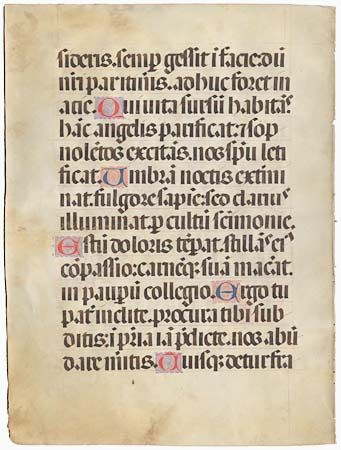 sideris. semp gessit i facie. dū
nr̄i par itinūs. ad huc foret in
acie. Qui vita sursū habitās
hāc angelis parificat. ⁊ sop
nolētos excitās. nos spū leti
ficat. Umbrā noctis extmi
nat. fulgore sapiē. seo clarius
illuminat. p cultū scimonie.
Estū doloris tēpat. stillās ei
cōpassio: carnēq; suā macat.
in paupū collegio. Ergo tu
pat inclite. procura tibi sub
ditis: ī pr̄ia iā pdicte. nos abū
dare mitis. Cuisq; detur fra